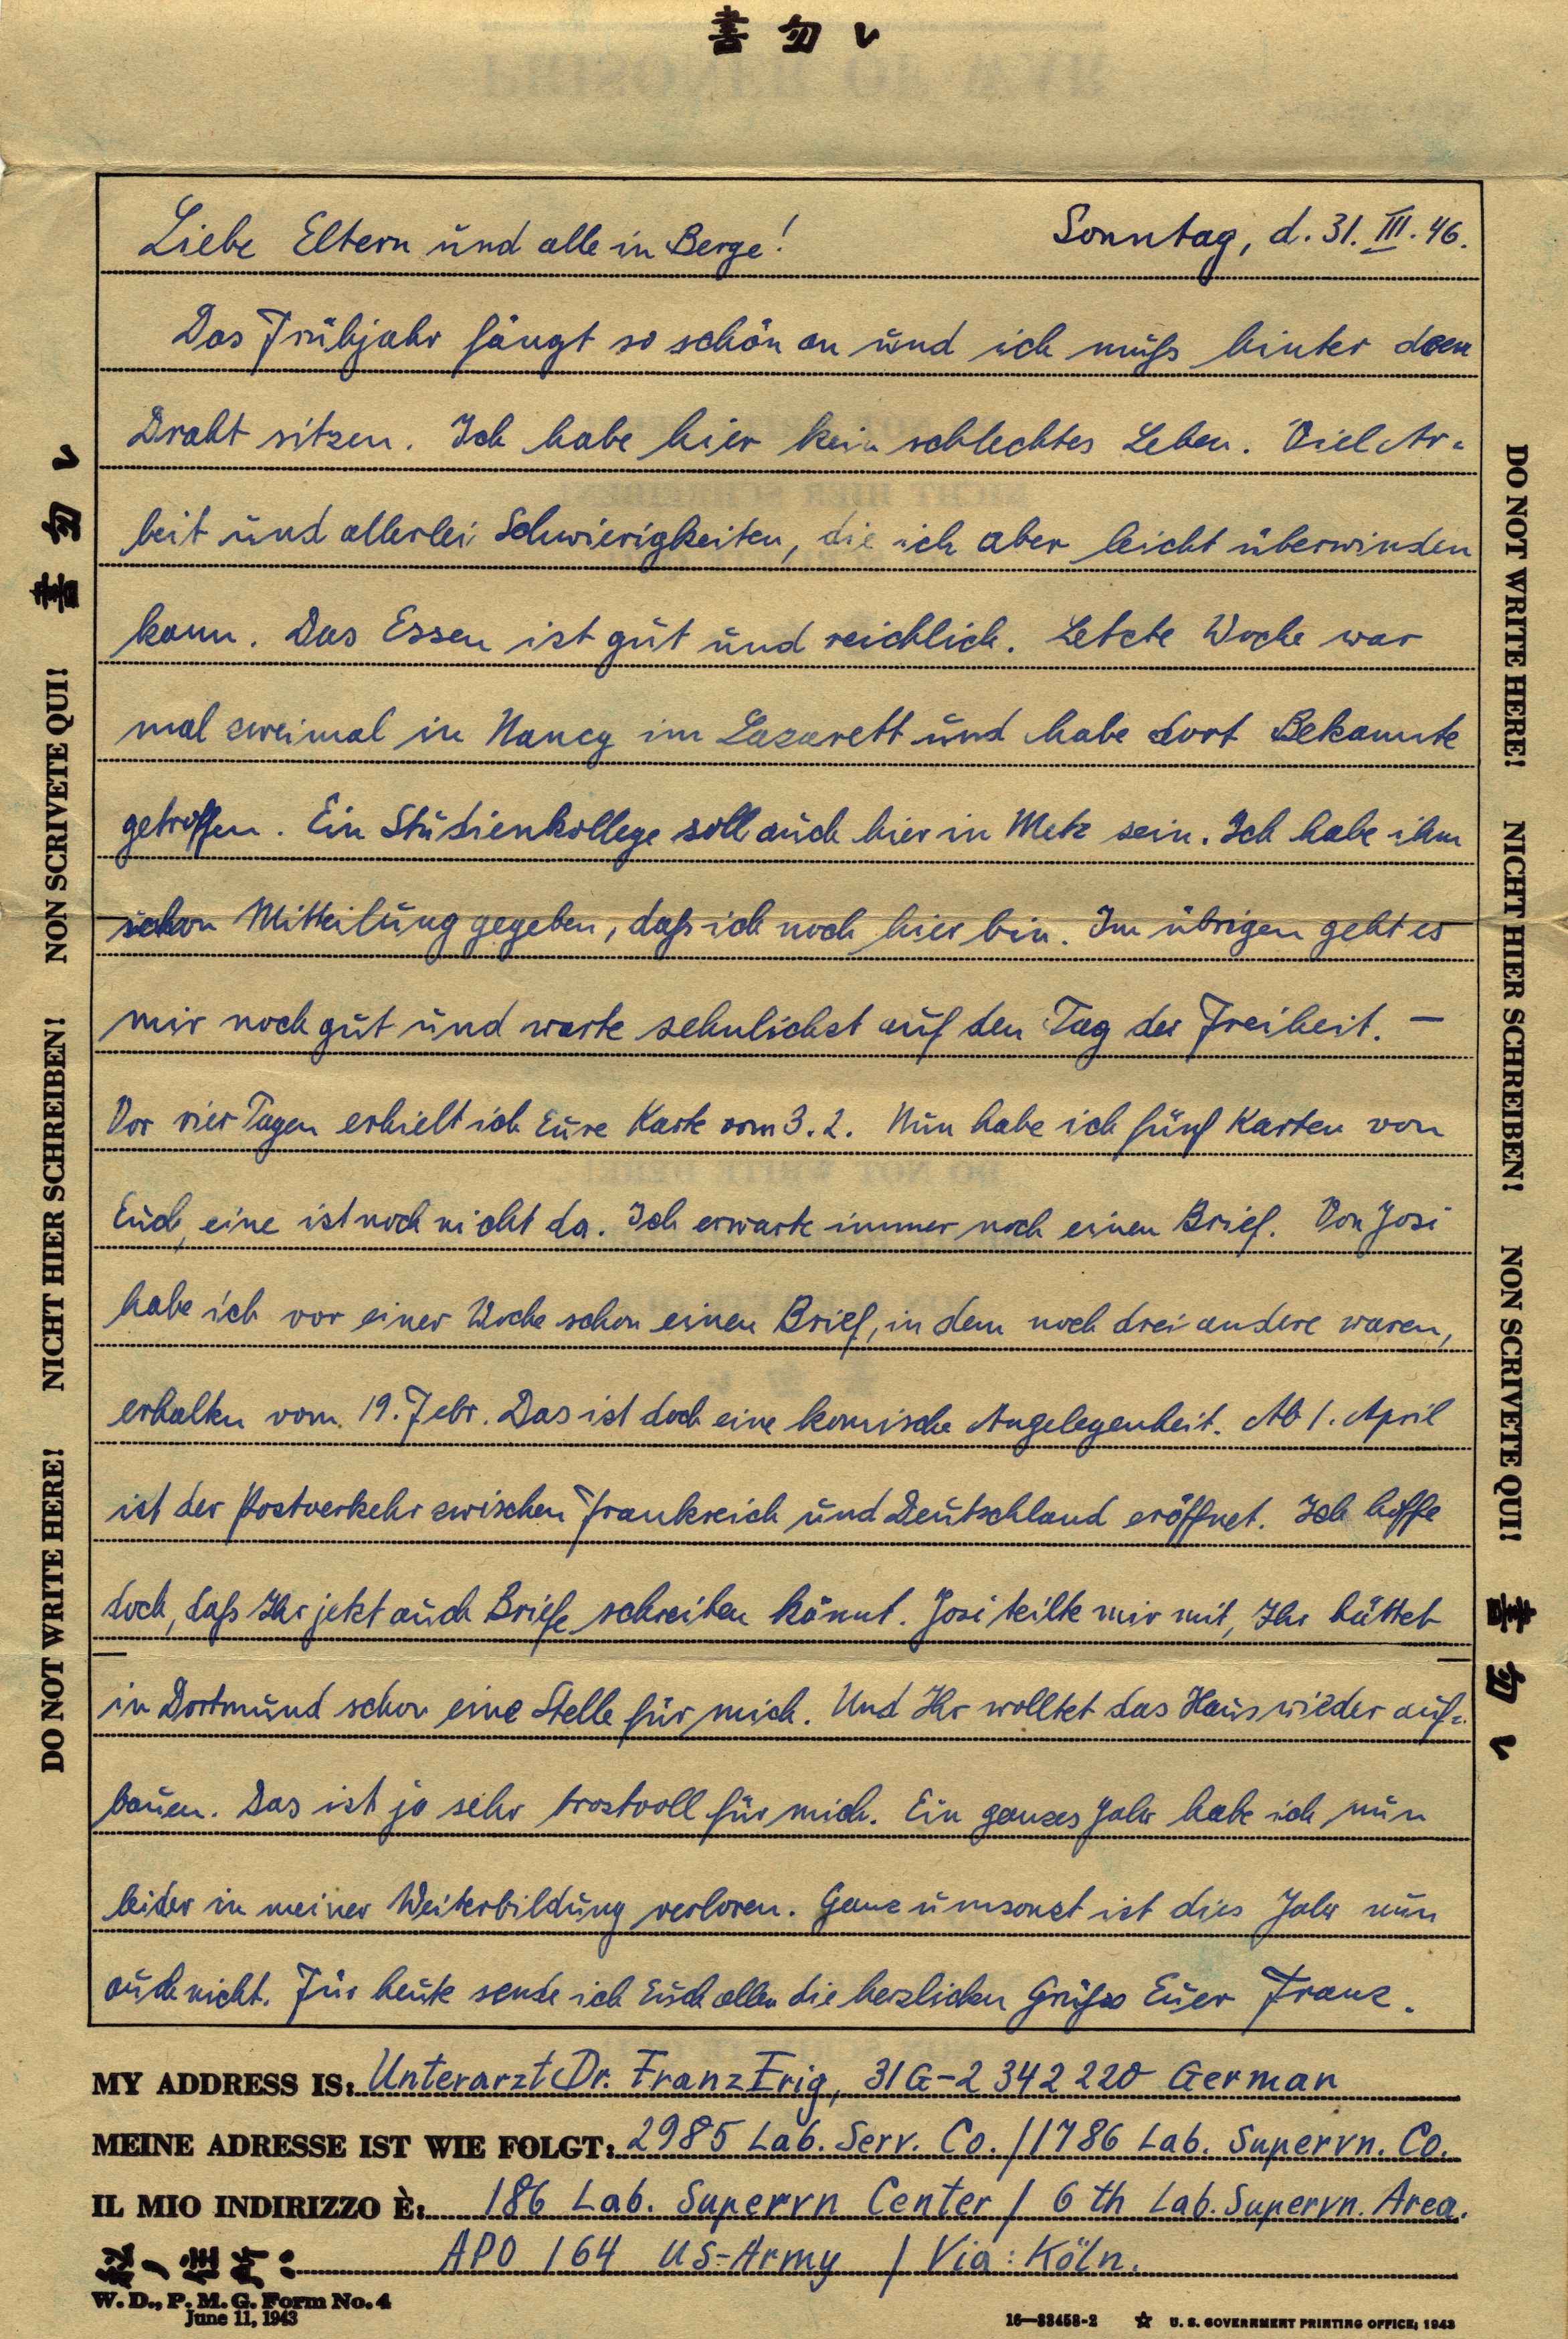 書勿レ
Liebe Eltern und alle in Berge! Sonntag, d. 31. III. 46.
Das Frühjahr fängt so schön an und ich muß hinter dem
Draht sitzen. Ich habe hier kein schlechtes Leben. Viel Ar=
beit und allerlei Schwierigkeiten, die ich aber leicht überwinden
kann. Das Essen ist gut und reichlich. Letzte Woche war
mal zweimal in Nancy im Lazarett und habe dort Bekannte
getroffen. Ein Studienkollege soll auch hier in Metz sein. Ich habe ihm
schon Mitteilung gegeben, daß ich noch hier bin. Im übrigen geht es
mir noch gut und warte sehnlichst auf den Tag der Freiheit. —
Vor vier Tagen erhielt ich Eure Karte vom 3. 2. Nun habe ich fünf Karten von
Euch, eine ist noch nicht da. Ich erwarte immer noch einen Brief. Von Josi
habe ich vor einer Woche schon einen Brief, in dem noch drei andere waren,
erhalten vom 19. Febr. Das ist doch eine komische Angelegenheit. Ab 1. April
ist der Postverkehr zwischen Frankreich und Deutschland eröffnet. Ich hoffe
doch, daß Ihr jetzt auch Briefe schreiben könnt. Josi teilte mir mit, Ihr hättet
in Dortmund schon eine Stelle für mich. Und Ihr wolltet das Haus wieder auf=
bauen. Das ist ja sehr trostvoll für mich. Ein ganzes Jahr habe ich nun
leider in meiner Weiterbildung verloren. Ganz umsonst ist dies Jahr nun
auch nicht. Für heute sende ich Euch allen die herzlichen Grüße Euer Franz.
MY ADDRESS IS: Unterarzt Dr. Franz Erig, 31G-2 342 220 German
MEINE ADRESSE IST WIE FOLGT: 2985 Lab. Serv. Co. / 1786 Lab. Supervn. Co.
IL MIO INDIRIZZO È: 186 Lab. Supervn Center / 6 th Lab. Supervn. Area.
私ノ住所: APO 164 US-Army / Via: Köln.
W. D., P. M. G. Form No. 4
June 11, 1943
16—33458-2 ☆ U. S. GOVERNMENT PRINTING OFFICE: 1943
DO NOT WRITE HERE! NICHT HIER SCHREIBEN! NON SCRIVETE QUI! 書勿レ
DO NOT WRITE HERE! NICHT HIER SCHREIBEN! NON SCRIVETE QUI! 書勿レ